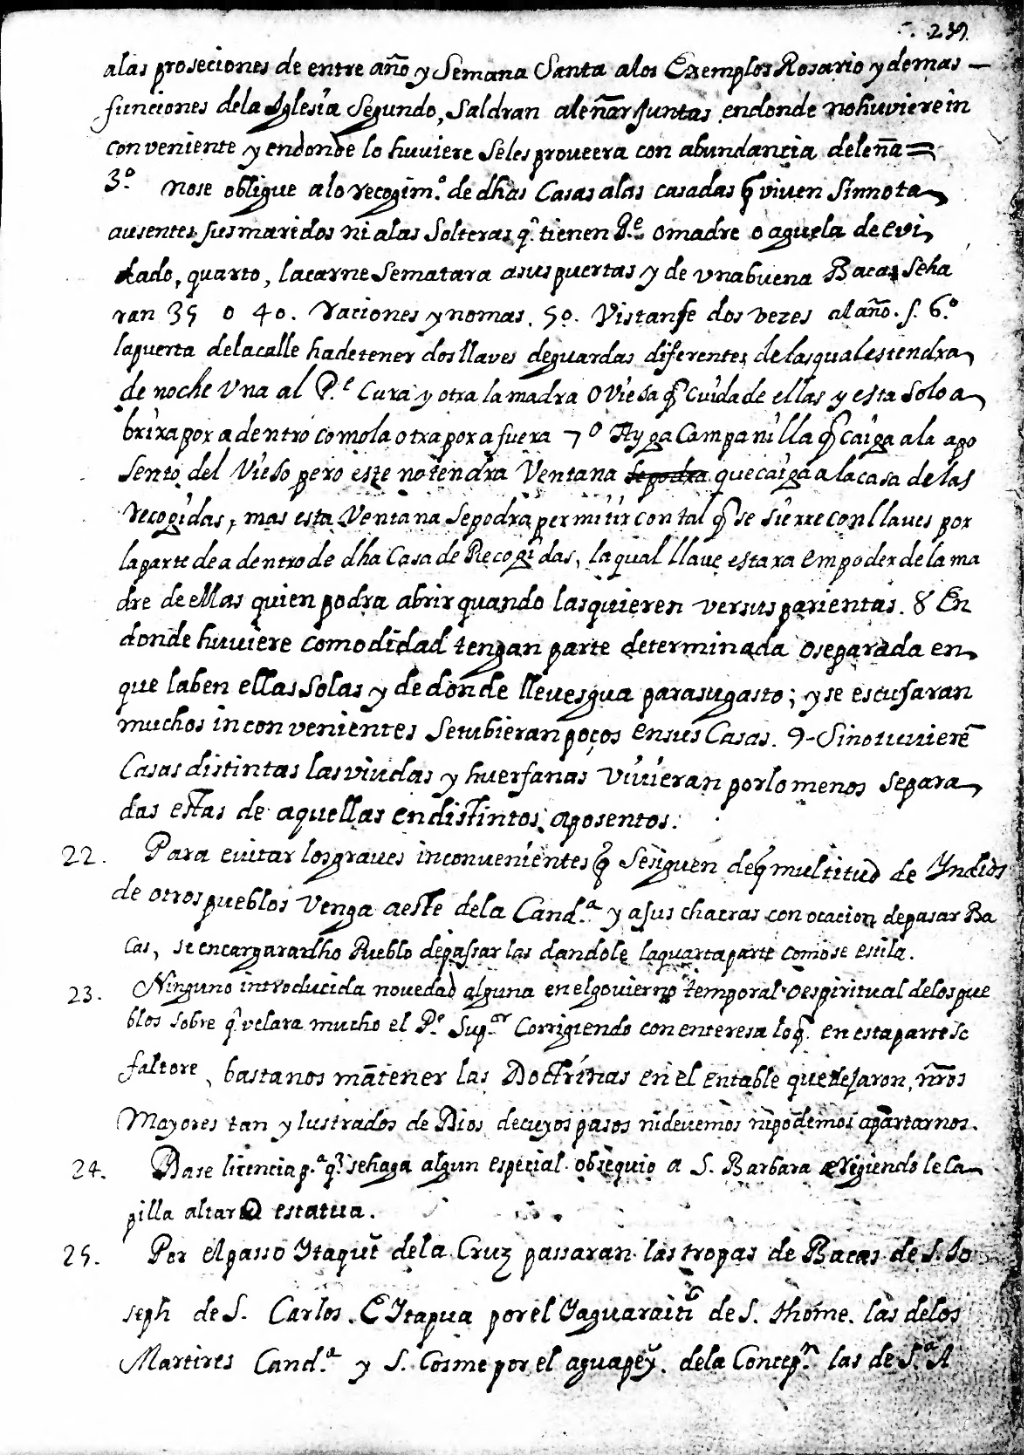 239.
alas proseciones de entre año y Semana Santa alos Exemplos Rosario y demas —
funciones dela Iglesia Segundo, Saldran aleñar Juntas endonde nohuviere in
conveniente y endonde lo huviere Seles proveera con abundancia deleña =
3.º Nose obligue alo recogim.º de dhas Casas alas casadas q̃ viven Sinnota
ausentes sus maridos ni alas Solteras q.̃ tienen P.e o madre o aguela de cui
dado, quarto, lacarne Sematara asus puertas y de vnabuena Baca, Seha
ran 35 o 40. raciones y nomas. 5º. Vistanse dos vezes al año. s. 6.º
lapuerta delacalle hadetener dos llaves deguardas diferentes, delasquales tendra
de noche Una al P.e Cura y otra la madra o Viesa q̃ Cuida de ellas y esta Solo a
brira por adentro comola otra por afuera 7º Ayga Campanilla q̃ caiga ala apo
sento del Vieso pero este notendra Ventana sepodra quecaiga alacasa de las
recogidas, mas esta Ventana Sepodra permitir con tal q̃ se sierre con llaves por
laparte de adentro de dha Casa de Recogidas, laqual llave estara em poder de la ma
dre de ellas quien podra abrir quando lasquieren versus parientas. 8 En
donde huviere comodidad tengan parte determinada o separada en
que laben ellas solas y de donde lleuesgua parasugasto; y se escusaran
muchos inconvenientes Setubieran poços ensus Casas. 9- Sinotuuierẽ
Casas distintas las viudas y huerfanas viuieran porlo menos Separa
das estas de aquellas endistintos aposentos.
22. Para euitar los graves inconvenientes q̃ Sesiguen deq̃ multitud de Yndios
de otros pueblos venga aeste dela Cand.a y asus chacras con ocacion depasar Ba
cas, se encargara dho Pueblo depassar las dandole la quarta parte como se estila.
23. Ninguno introducida novedad alguna en elgovierno temporal o espiritual delos pue
blos sobre q̃ velara mucho el P.e Sup.or Corrigiendo con enteresa loq̃. en esta parte se
faltore, bastanos mãtener las Doctrinas en el entable quedejaron nr̃os
Mayores tan ylustrados de Dios decuyos pasos nideuemos nipodemos apartarnos.
24. Dase licencia p.a q.̃ sehaga algun especial obsequio a S. Barbara erigiendo le Ca
pilla altar o estatua.
25. Por el passo Ytaqui dela Cruz passaran las tropas de Bacas de S. Jo
seph de S. Carlos. E Itapua por el Yaguaraiti de S. thome. las delos
Martires Cand.a y S. Cosme por el aguapey. dela Concep.n las de S.ta A